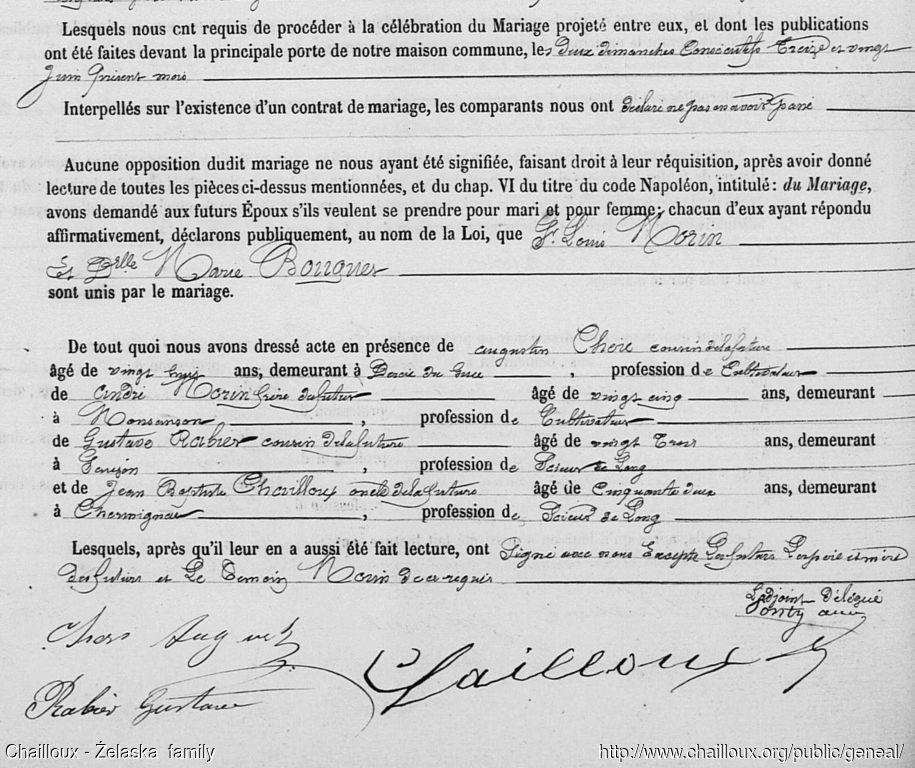 Lesquels nous ont requis de procéder à la célébration du Mariage projeté entre eux, et dont les publications
ont été faites devant la principale porte de notre maison commune, les deux dimanches Consécutifs Treize et vingt
Juin présent mois
Interpellés sur l'existence d'un contrat de mariage, les comparants nous ont déclaré ne pas en avoir passé
Aucune opposition dudit mariage ne nous ayant été signifiée, faisant droit à leur réquisition, après avoir donné
lecture de toutes les pièces ci-dessus mentionnées, et du chap. VI du titre du code Napoléon, intitulé: du Mariage,
avons demandé aux futurs Époux s'ils veulent se prendre pour mari et pour femme; chacun d'eux ayant répondu
affirmativement, déclarons publiquement, au nom de la Loi, que Sr. Louis Morin
Et Dlle Marie Bouquet
sont unis par le mariage.
De tout quoi nous avons dressé acte en présence de augustin Choré cousin delafuture
âgé de vingt huit ans, demeurant à , profession de Cultivateur
de André Morin frère du futur âgé de vingt cinq ans, demeurant
à Monsanson , profession de Cultivateur
de Gustave Rabier cousin delafuture âgé de vingt Trois ans, demeurant
à , profession de Scieur de Long
et de Jean Baptiste Chailloux oncle delafuture âgé de Cinquante deux ans, demeurant
à Chermignac , profession de Scieur de Long
Lesquels, après qu'il leur en a aussi été fait lecture, ont Signé avec nous Excepté Les futurs Les père et mère
des futurs et Le Temoin Morin de ce requis
L'adjoint Délégué
Chailloux
Rabier Gustave
Chailloux - Żelaska family
http://www.chailloux.org/public/geneal/